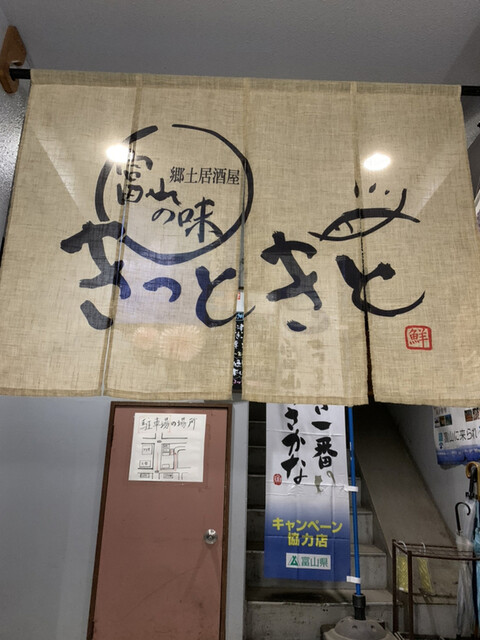 郷土居酒屋
富山の味
きっときと
鮮
駐車場の場所
一番の
さかな
キャンペーン
協力店
富山県
富山に来られ